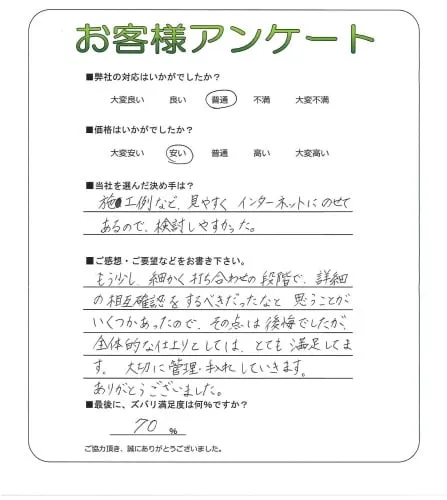 お客様アンケート
■弊社の対応はいかがでしたか？
大変良い 良い 普通 不満 大変不満
■価格はいかがでしたか？
大変安い 安い 普通 高い 大変高い
■当社を選んだ決め手は？
施工例など、見やすく インターネットにのせて
あるので、検討しやすかった。
■ご感想・ご要望などをお書き下さい。
もう少し、細かく打ち合わせの段階で、詳細
の相互確認をするべきだったなと 思うことが
いくつかあったので、その点は後悔でしたが、
全体的な仕上りとしては、とても満足してま
す。 大切に管理・手入れしていきます。
ありがとうございました。
■最後に、ズバリ満足度は何%ですか？
70 %
ご協力頂き、誠にありがとうございました。